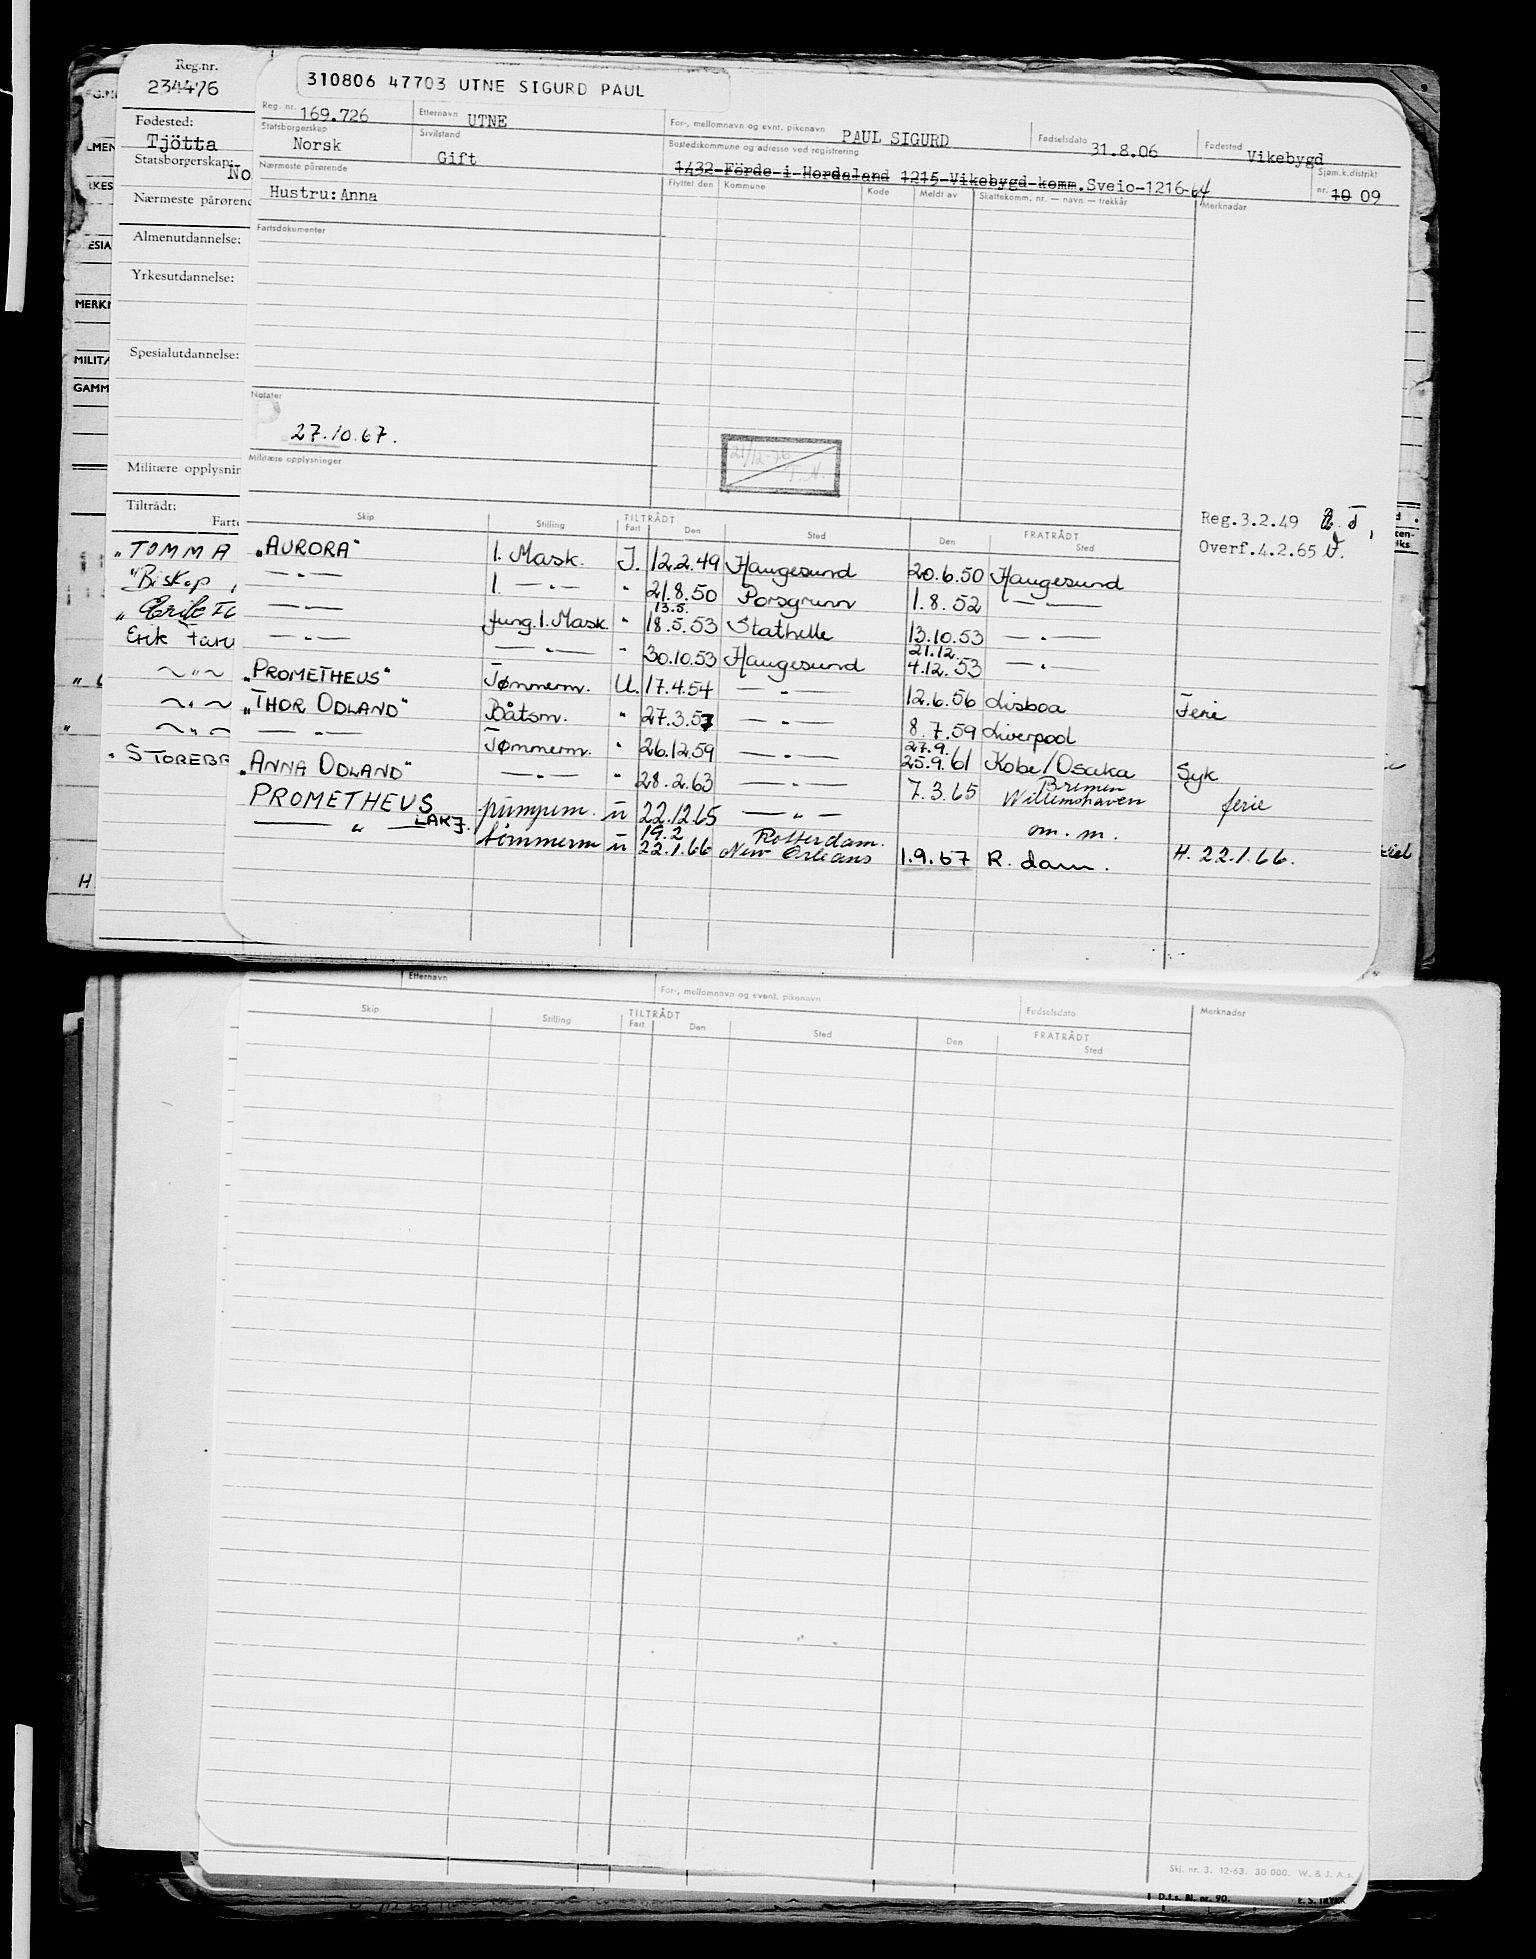 Reg.nr.
234476
Fødested:
Tjötta
Statsborgerskap:
No
Nærmeste pårørend
Almenutdannelse:
Yrkesutdannelse:
Spesialutdannelse:
Militære opplysnin
Tiltrådt:
Farte
"TOMMA
"Biskop
Erik Taru
"STOREBR
MERKN
MILITÆ
GAMM
H
310806 47703 UTNE SIGURD PAUL
Reg. nr. 169.726 Etternavn UTNE For-, mellomnavn og evnt. pikenavn PAUL SIGURD Fødselsdato 31.8.06 Fødested Vikebygd
Statsborgerskap Norsk Sivilstand Gift Bostedskommune og adresse ved registrering 1432-Förde-i-Hordaland 1215-Vikebygd-komm.Sveio-1216-64 Sjøm.k.distrikt nr. 10 09
Nærmeste pårørende Flyttet den Kommune Kode Meldt av Skattekomm. nr. — navn — trekkår Merknader
Hustru: Anna
Fartsdokumenter
Notater
27.10.67.
21/12-76
T.N.
Militære opplysninger
Reg.3.2.49
Overf.4.2.65
Skip Stilling TILTRÅDT Fart Den Sted FRATRÅDT Den Sted
"AURORA" 1. Mask. I. 12.2.49 Haugesund 20.6.50 Haugesund
— " — 1. — " — " 21.8.50 Porsgrunn 1.8.52 — " —
13.5.
— " — fung. 1. Mask. " 18.5.53 Stathelle 13.10.53 — " —
21.12.
— " — — " — " 30.10.53 Haugesund 4.12.53 — " —
"PROMETHEUS" Tømmerm. U. 17.4.54 — " — 12.6.56 Lisboa Ferie
"THOR ODLAND" Båtsm. " 27.3.57 — " — 8.7.59 Liverpool
27.9.
— " — Tømmerm. " 26.12.59 — " — 25.9.61 Kobe/Osaka Syk
"ANNA ODLAND" — " — " 28.2.63 — " — 7.3.65 Bremen Willemshaven ferie
PROMETHEUS pumpem. u 22.12.65 — " — om. m.
19.2 Rotterdam.
— " — tömmerm u 22.1.66 New Orleans 1.9.67 R. dam. H. 22.1.66.
Etternavn For-, mellomnavn og event. pikenavn Fødselsdato Merknader
Skip Stilling TILTRÅDT Fart Den Sted FRATRÅDT Den Sted
Skj. nr. 3. 12-63. 30 000. W. & J. A.s.
D.f.s. Bl. nr. 90.